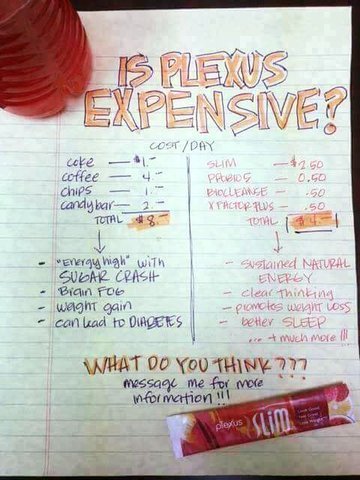 IS PLEXUS
EXPENSIVE?
COST/DAY
coke — $1.-
coffee — 4.-
chips — 1.-
candybar — 2.-
TOTAL $8.-
- "Energy high" with
SUGAR CRASH
- Brain FOG
- weight gain
- can lead to DIABETES
SLIM — $2.50
PROBIO5 — 0.50
BIOCLEANSE — .50
X FACTOR PLUS — .50
TOTAL $4.-
- sustained NATURAL
ENERGY
- clear thinking
- promotes weight LOSS
- better SLEEP
... + much more !!!
WHAT DO YOU THINK ???
message me for more
information !!!
plexus
SLIM